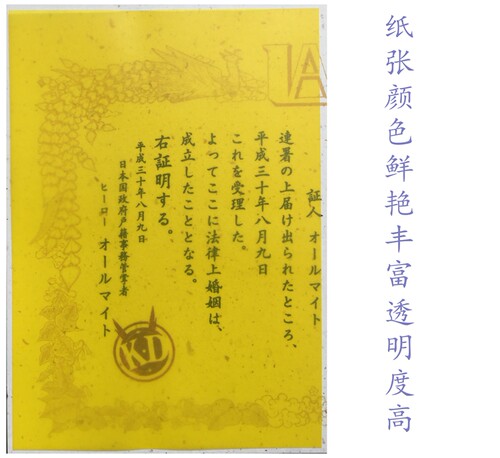 纸张颜色鲜艳丰富透明度高
証人 オールマイト
連署の上届け出られたところ、
平成三十年八月九日
これを受理した。
よってここに法律上婚姻は、
成立したこととなる。
右証明する。
平成三十年八月九日
日本国政府戸籍事務管掌者
ヒーロー オールマイト
KD